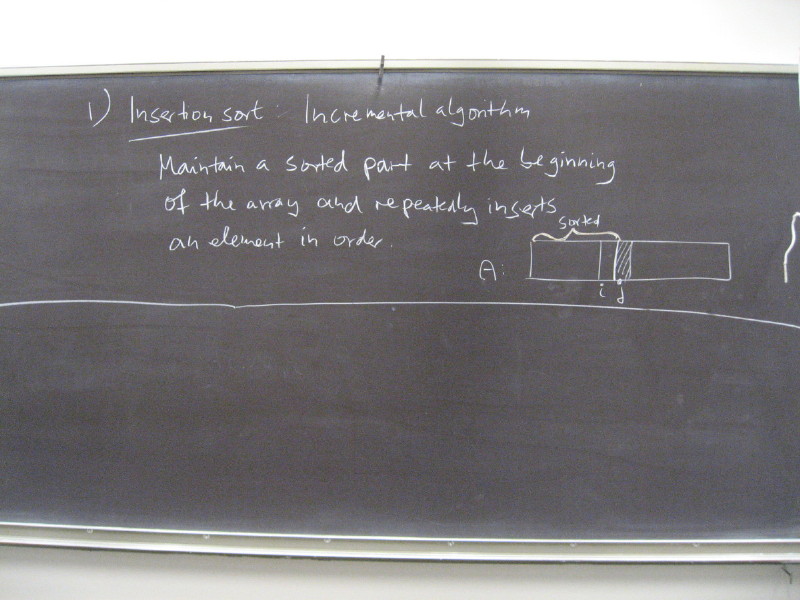 1) Insertion sort: Incremental algorithm
Maintain a sorted part at the beginning
of the array and repeatedly inserts
an element in order.
sorted
A:
i j